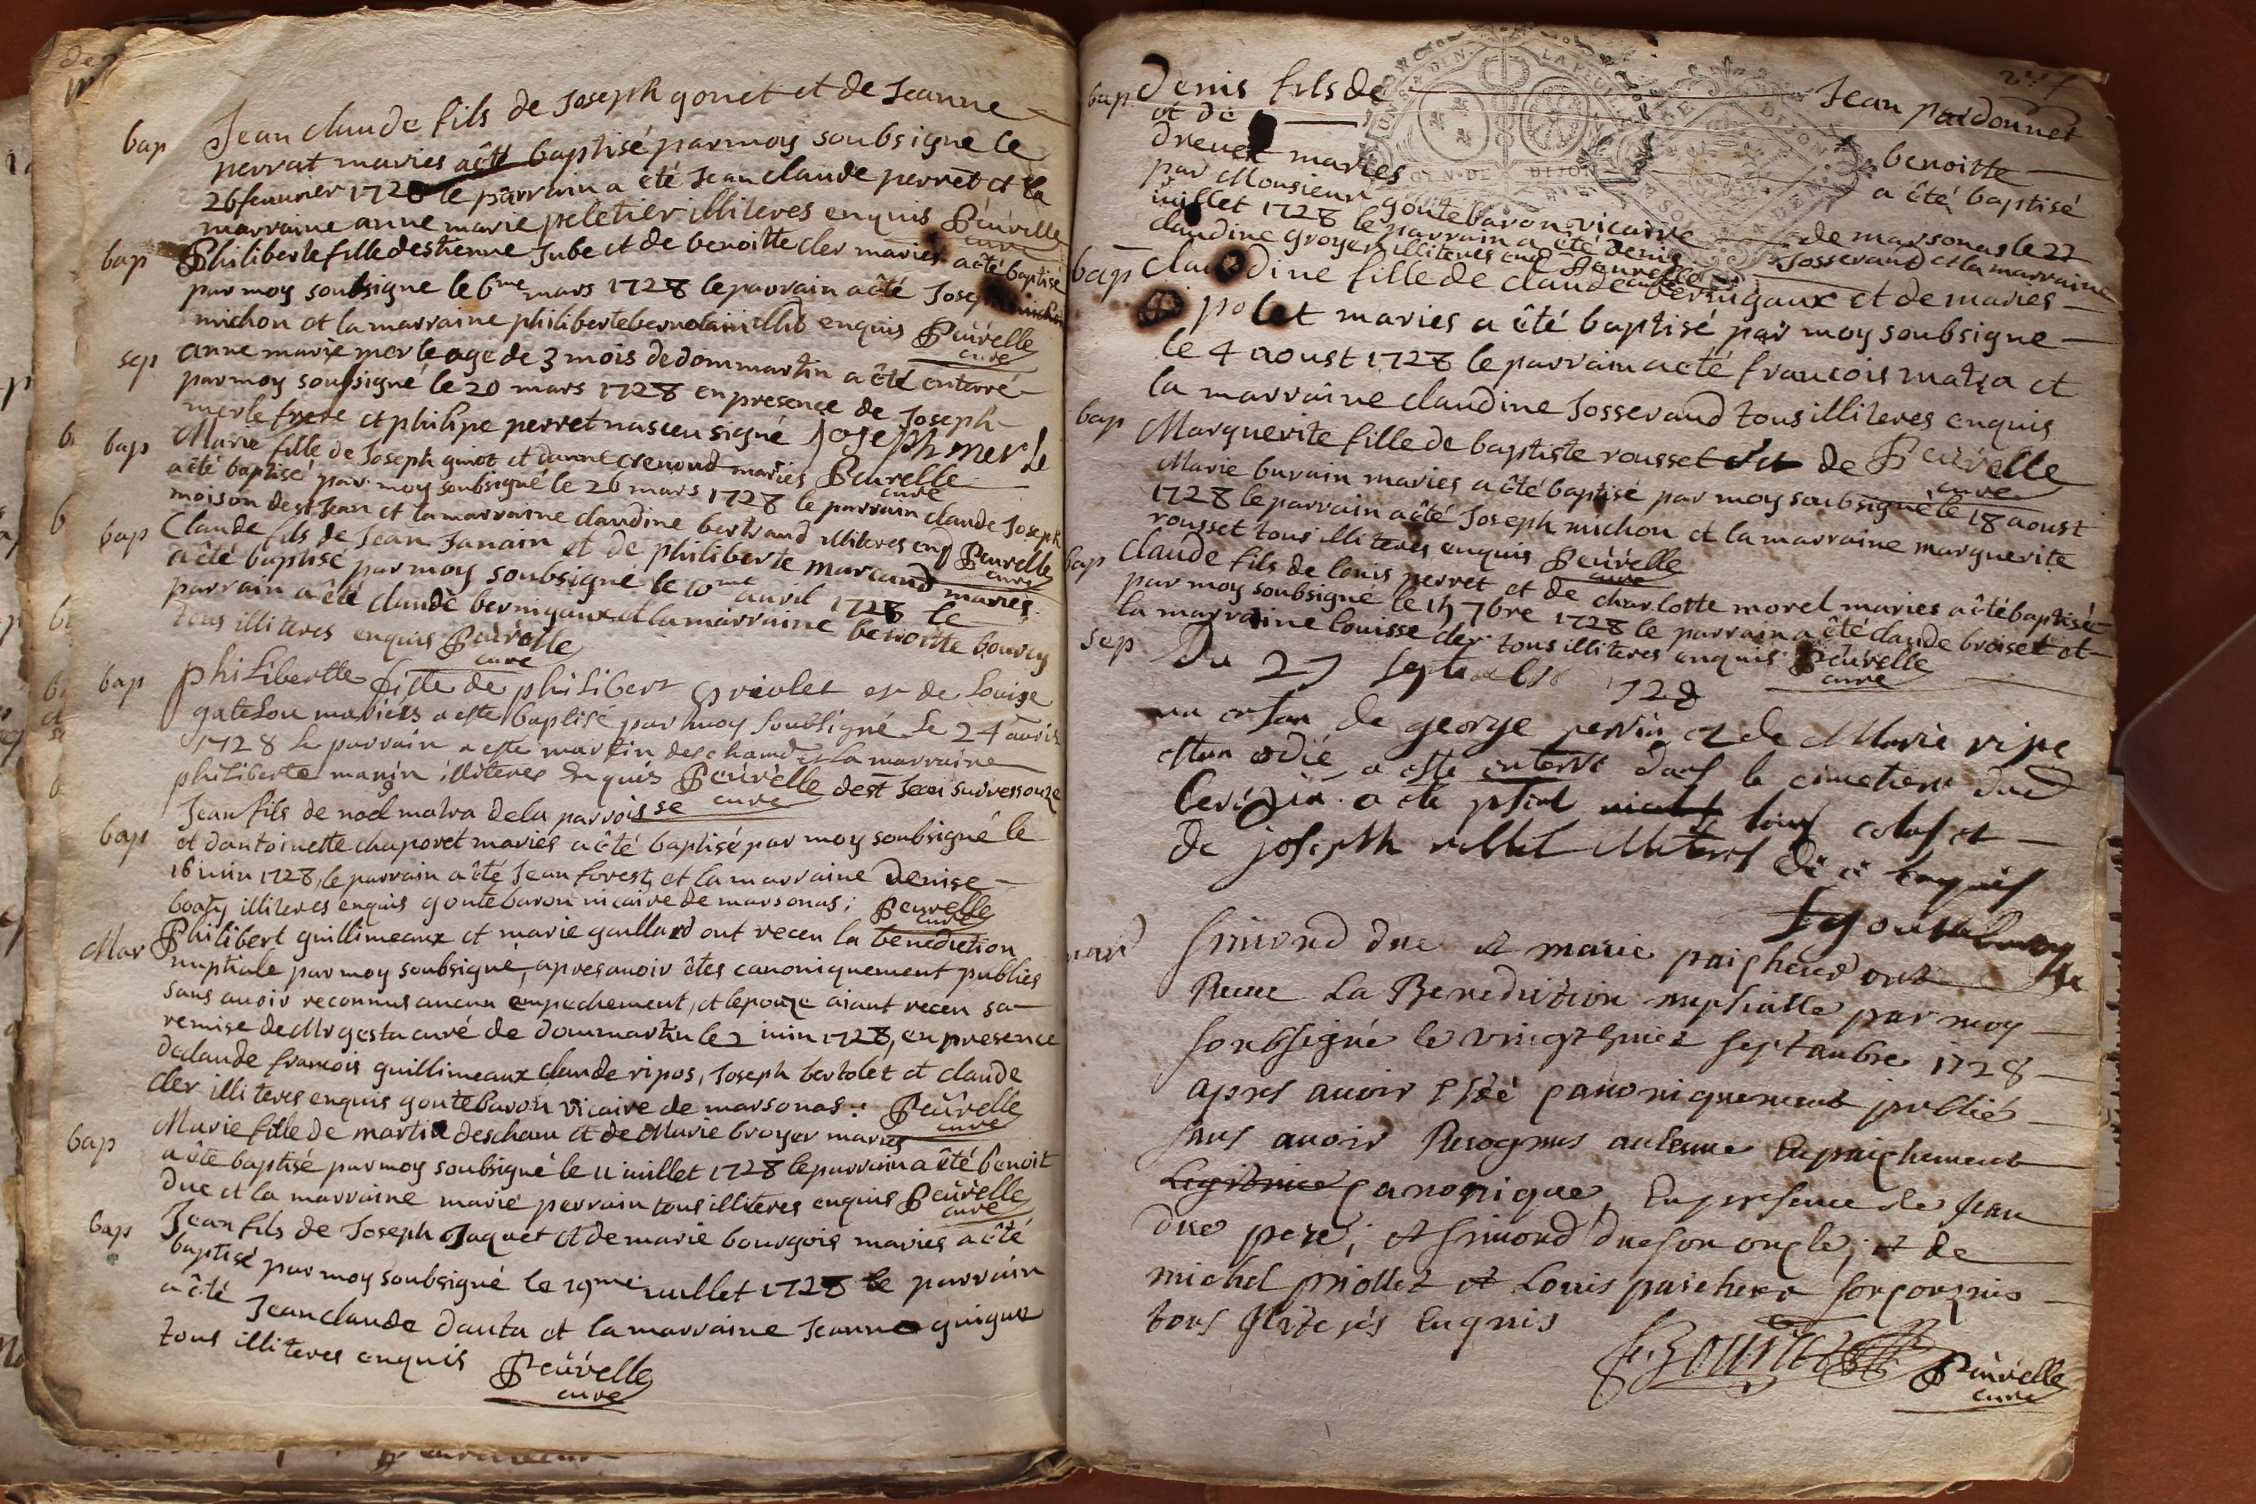 bap Jean claude fils de Joseph gonet et de Jeanne
perrat maries a êté baptisé par moy soubsigne le
26 feuurier 1728 le parrain a êté Jean claude perret et la
marraine anne marie peletier illiteres enquis Beuvelle
cure
bap Philiberte fille destienne Jube et de benoitte cler maries a êté baptisé
par moy soubsigne le 6me mars 1728 le parrain a êté Joseph michon
michon et la marraine philiberte enquis Beuvelle
cure
sep anne marie merle age de 3 mois de dommartin a êté enterré
par moy soubsigné le 20 mars 1728 en presence de Joseph
merle frere et philipe perret signé Joseph merle
bap Marie fille de Joseph guiot et danne crenoud maries Beuvelle
cure
a êté baptisé par moy soubsigné le 26 mars 1728 le parrain claude Joseph
moison de st Jean et la marraine claudine bertrand illiteres enq Beuvelle
cure
bap Claude fils de Jean Janain et de philiberte marcaud maries
a êté baptisé par moy soubsigné le 10me auril 1728 le
parrain a êté claude bernigaux et la marraine benoitte bourcy
tous illiteres enquis Beuvelle
cure
bap philibertte fille de philibert priolet et de Louise
gatelou mariers a este baptisé par moy soubsigné Le 24 auril
1728 Le parrain a este martin deschamp et La marraine
philiberte mangin illiteres Enquis Beuvelle
cure
bap Jean fils de noel matra de la parroisse dest Jean sur ressouze
et dantoinette chaporet mariés a êté baptisé par moy soubsigné le
16 iuin 1728, le parrain a êté Jean forest, et la marraine Denise
boasy illiteres enquis goutebaron uicaire de marsonas; Beuvelle
cure
Mar Philibert guillimeaux et marie gaullard ont receu la benediction
nuptiale par moy soubsigne, apres auoir êtes canoniquement publies
sans auoir reconnus aucun empechement, et lepouze aiant receu sa
remise de Mr gesta curé de dommartin le 2 iuin 1728, en presence
declaude francois guillimeaux claude ripos, Joseph bertolet et claude
cler illiteres enquis goutebaron vicaire de marsonas: Beuvelle
cure
bap Marie fille de martin descham et de Marie broyer maries
a êté baptisé par moy soubsigné le 11 iuillet 1728 le parrain a êté benoit
duc et la marraine marie perrain tous illiteres enquis Beuvelle
cure
bap Jean fils de Joseph Jaquet et de marie bourgois maries a êté
baptisé par moy soubsigné le 19me iuillet 1728 le parrain
a êté Jean claude danta et la marraine Jeanne guigue
tous illiteres enquis Beuvelle
cure
bap Denis fils de Jean pardonnet
et de benoitte
dreuet maries a êté baptisé
par Monsieur goutebaron vicaire de marsonas le 22
iuillet 1728 le parrain a êté denis Josserand et la marraine
claudine groyer illiteres enq Beuvelle
cure
bap claudine fille de claude bernigaux et de maries
polet maries a êté baptisé par moy soubsigne
le 4 aoust 1728 le parrain a eté francois matra et
la marraine claudine Josserand tous illiteres enquis
Beuvelle
cure
bap Marguerite fille de baptiste rousset et de
Marie burain maries a êté baptisé par moy soubsigné le 18 aoust
1728 le parrain a êté Joseph michon et la marraine marguerite
rousset tous illiteres enquis Beuvelle
cure
bap claude fils de louis perret et de charlotte morel maries a êté baptisé
par moy soubsigné le 15 7bre 1728 le parrain a êté claude broiset et
la marraine louisse cler tous illiteres enquis Beuvelle
cure
sep Du 27 septembre 1728
un enfan de george perrin et de Marie ripe
a esté enterré dans le cimetiere dud
a eté
de joseph illiteres de ce enquis
mard Simond duc et marie paicheud ont
Reçue La Benediction nuptialle par moy
soubsigné le septanbre 1728
apres auoir esté canoniquement publié
sans auoir Recognus aulcune Enpaichement
Legitime canonique, En presence de Jean
duc pere; et simond duc son oncle; et de
michel piollet et Louis paicheud
tous Illiterés Enquis
Beuvelle
cure